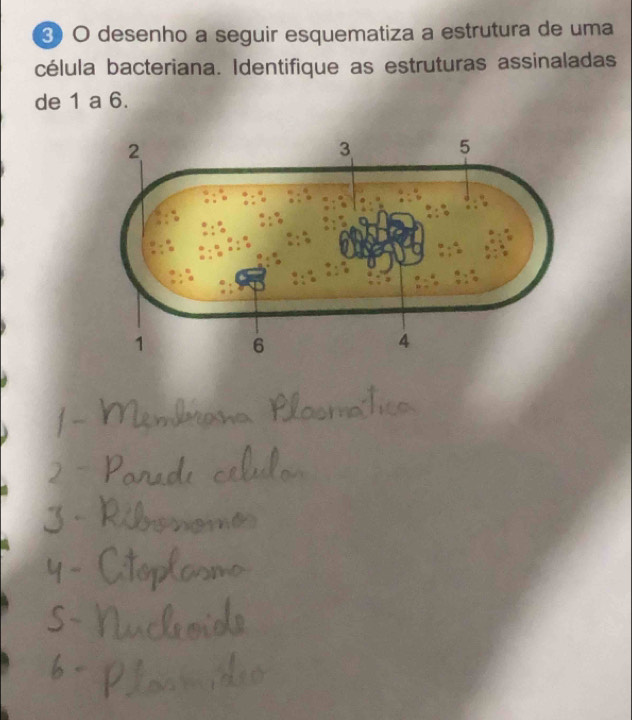 3 O desenho a seguir esquematiza a estrutura de uma
célula bacteriana. Identifique as estruturas assinaladas
de 1 a 6.
2 3 5
1 6 4
1- Membrana Plasmática
2- Parede celular
3- Ribossomos
4- Citoplasma
5- Nucleoide
6- Plasmídeo